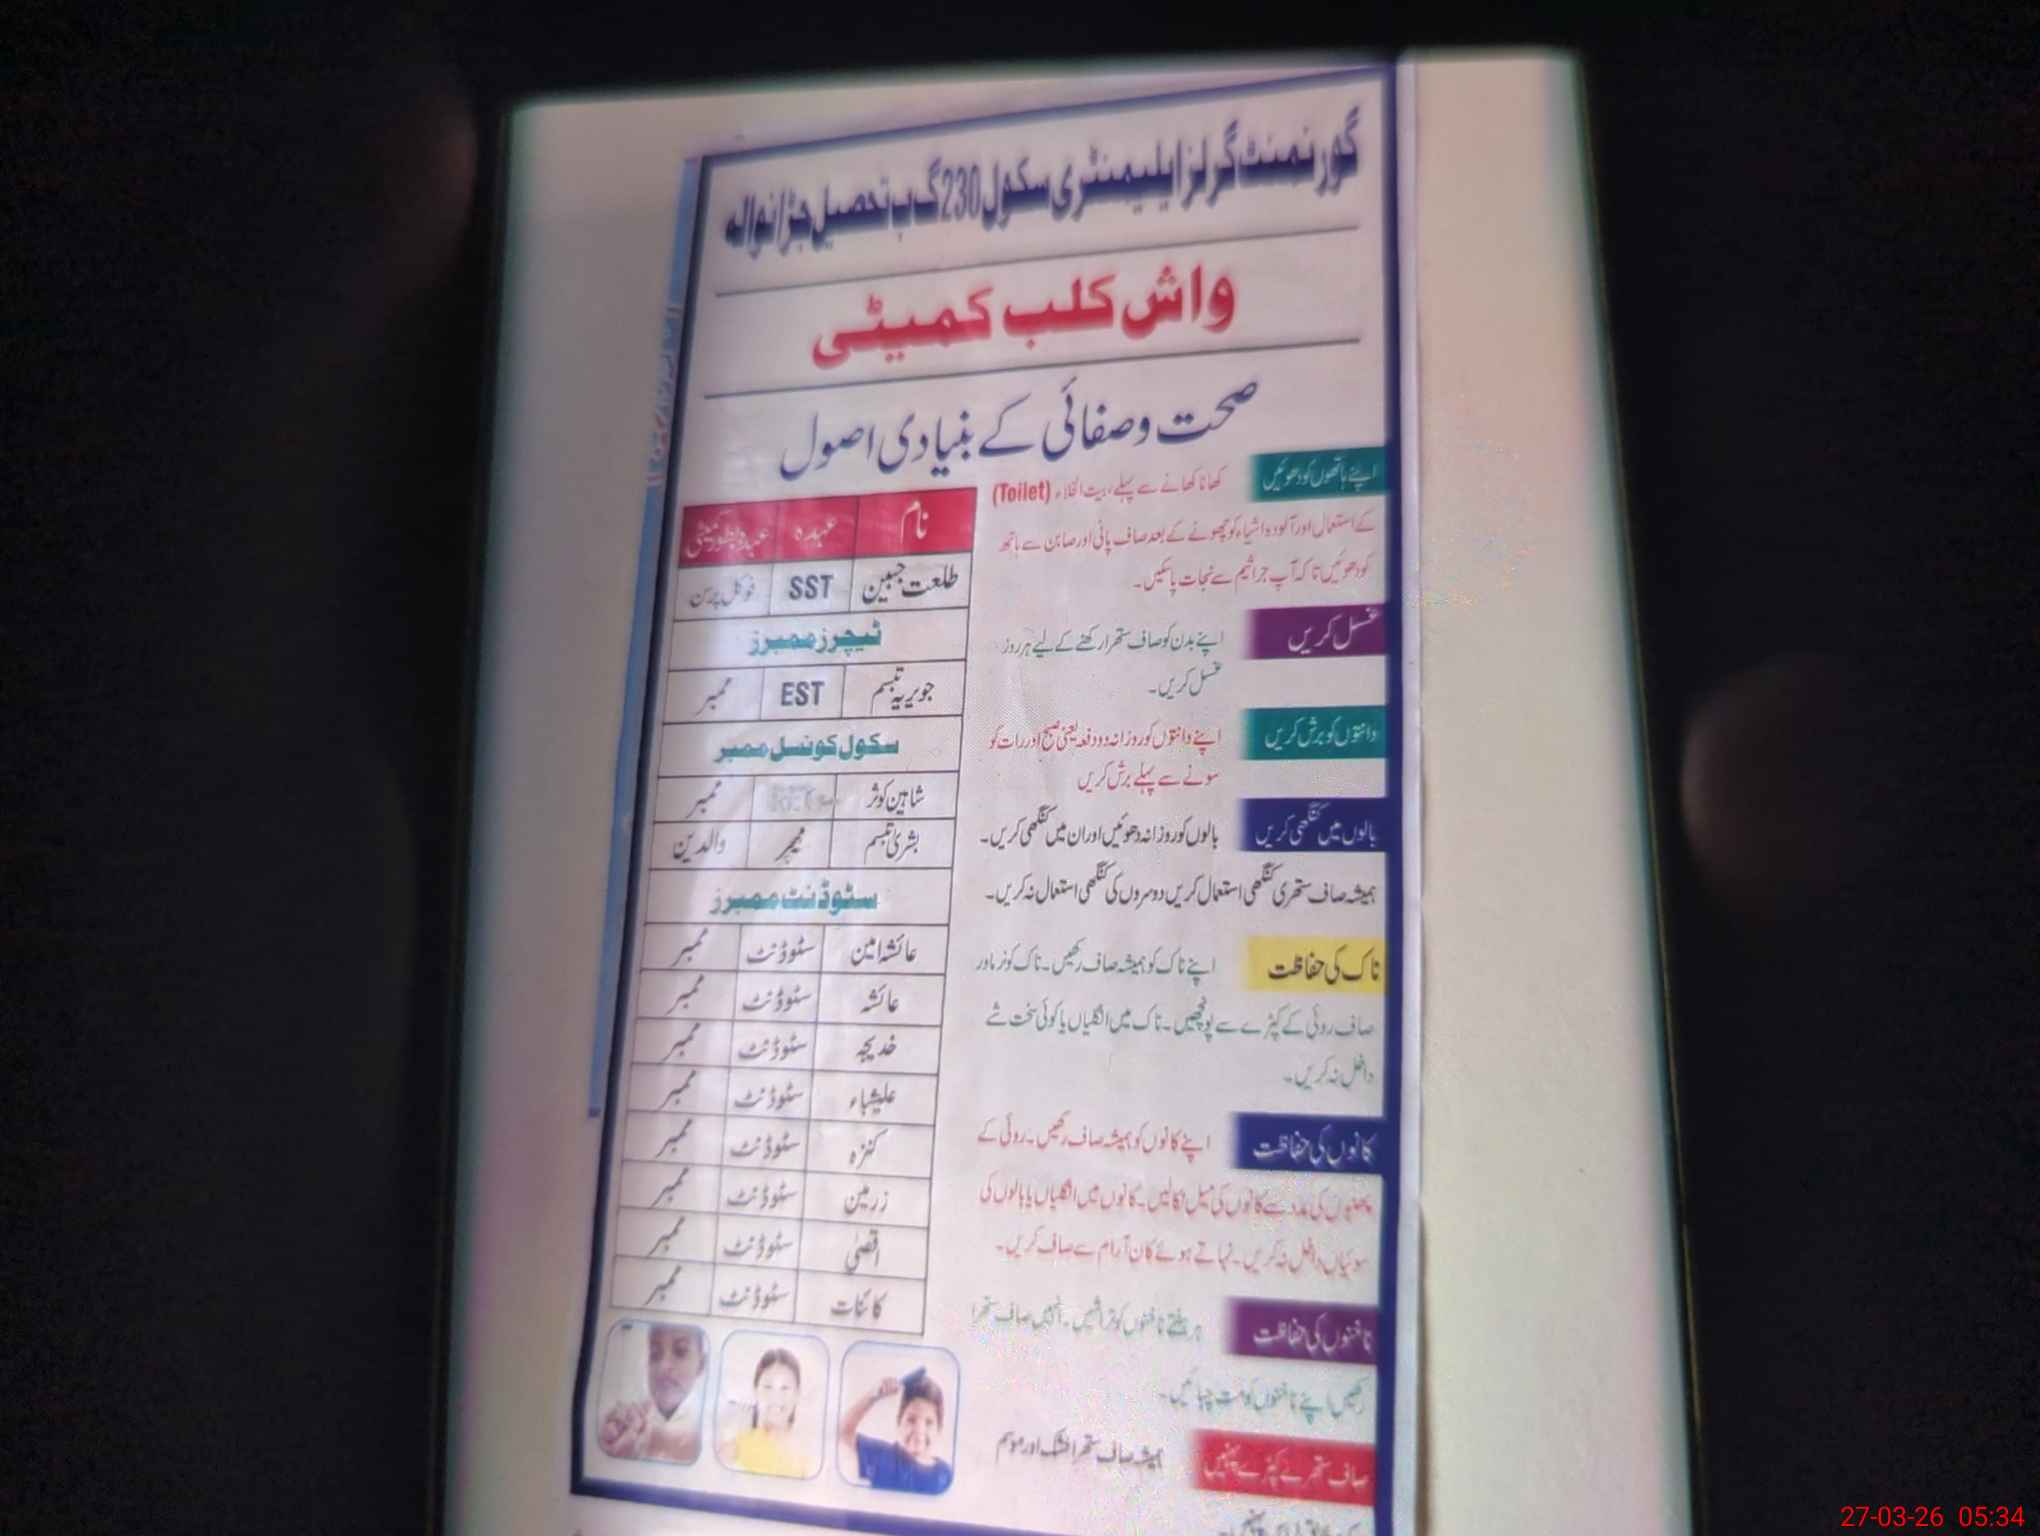 گورنمنٹ گرلز ایلیمنٹری سکول 230 گ ب تحصیل جڑانوالہ
واش کلب کمیٹی
صحت و صفائی کے بنیادی اصول
اپنے ہاتھوں کو دھوئیں
کھانا کھانے سے پہلے، بیت الخلاء (Toilet)
کے استعمال اور آلودہ اشیاء کو چھونے کے بعد صاف پانی اور صابن سے ہاتھ
کو دھوئیں تاکہ آپ جراثیم سے نجات پا سکیں۔
غسل کریں
اپنے بدن کو صاف ستھرا رکھنے کے لیے ہر روز
غسل کریں۔
دانتوں کو برش کریں
اپنے دانتوں کو روزانہ دو دفعہ یعنی صبح اور رات کو
سونے سے پہلے برش کریں
بالوں میں کنگھی کریں
بالوں کو روزانہ دھوئیں اور ان میں کنگھی کریں۔
ہمیشہ صاف ستھری کنگھی استعمال کریں دوسروں کی کنگھی استعمال نہ کریں۔
ناک کی حفاظت
اپنے ناک کو ہمیشہ صاف رکھیں۔ ناک کو نرم اور
صاف روئی کے کپڑے سے پونچھیں۔ ناک میں انگلیاں یا کوئی سخت شے
داخل نہ کریں۔
کانوں کی حفاظت
اپنے کانوں کو ہمیشہ صاف رکھیں۔ روئی کے
کی مدد سے کانوں کی میل نکالیں۔ کانوں میں انگلیاں یا بالوں کی
سوئیاں داخل نہ کریں۔ نہاتے ہوئے کان آرام سے صاف کریں۔
ناخنوں کی حفاظت
ہر ہفتے ناخنوں کو تراشیں۔ انہیں صاف ستھرا
رکھیں اپنے ناخنوں کو مت چبائیں۔
صاف ستھرے کپڑے پہنیں
ہمیشہ صاف ستھرا خشک اور موسم
نام عہدہ عہدہ بطور کمیٹی
طلعت جبین SST فوکل پرسن
ٹیچرز ممبرز
جویریہ تبسم EST ممبر
سکول کونسل ممبر
شاہین کوثر ممبر
بشریٰ تبسم ٹیچر والدین
سٹوڈنٹ ممبرز
عائشہ امین سٹوڈنٹ ممبر
عائشہ سٹوڈنٹ ممبر
خدیجہ سٹوڈنٹ ممبر
علیشباء سٹوڈنٹ ممبر
کنزہ سٹوڈنٹ ممبر
زرمین سٹوڈنٹ ممبر
اقصیٰ سٹوڈنٹ ممبر
کائنات سٹوڈنٹ ممبر
27-03-26 05:34